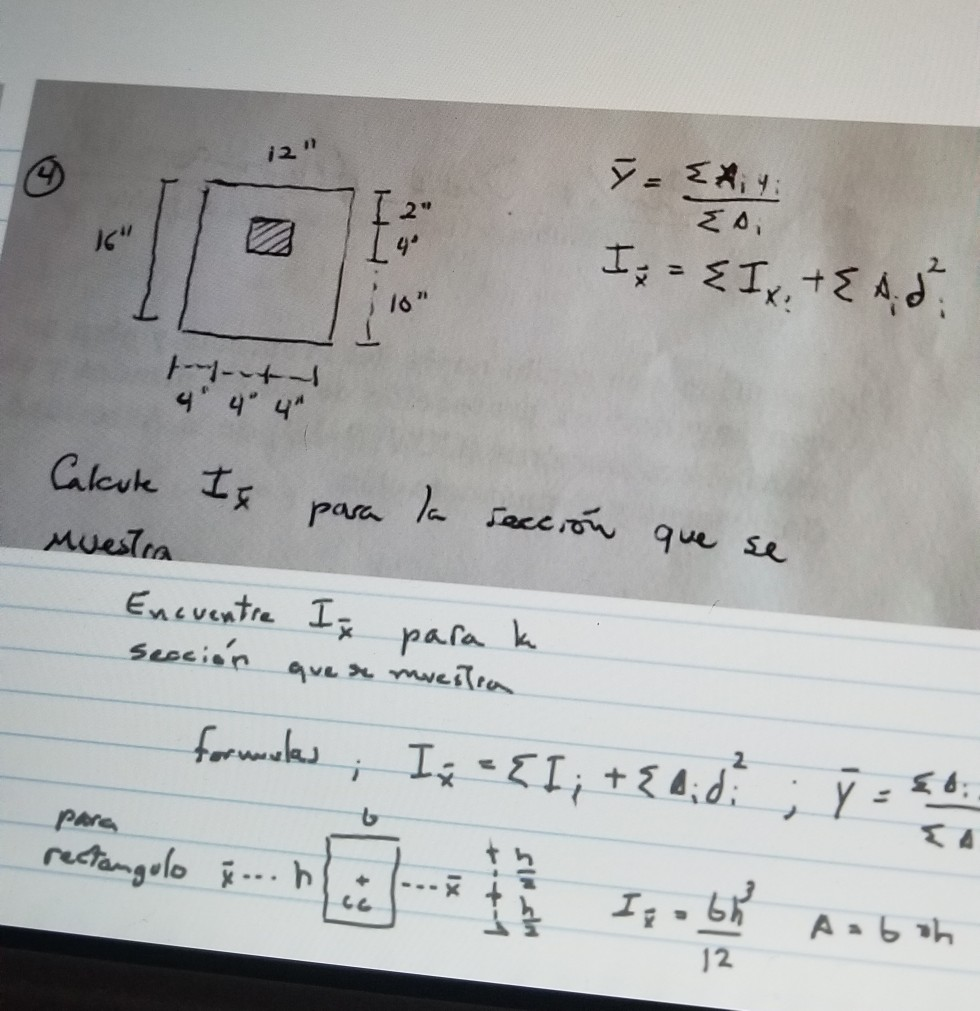 4
12"
16"
2"
4"
10"
4" 4" 4"
ȳ = Σ Aᵢ yᵢ / Σ Aᵢ
I x̄ = Σ I xᵢ + Σ Aᵢ dᵢ²
Calcule I x̄ para la sección que se
muestra
Encuentre I x̄ para la
sección que se muestra
formulas ; I x̄ = Σ Iᵢ + Σ Aᵢ dᵢ² ; ȳ = Σ Aᵢ / Σ A
para
rectangulo x̄ --- h b + cc --- x̄ h/2 h/2 I x̄ = bh³/12 A = b * h